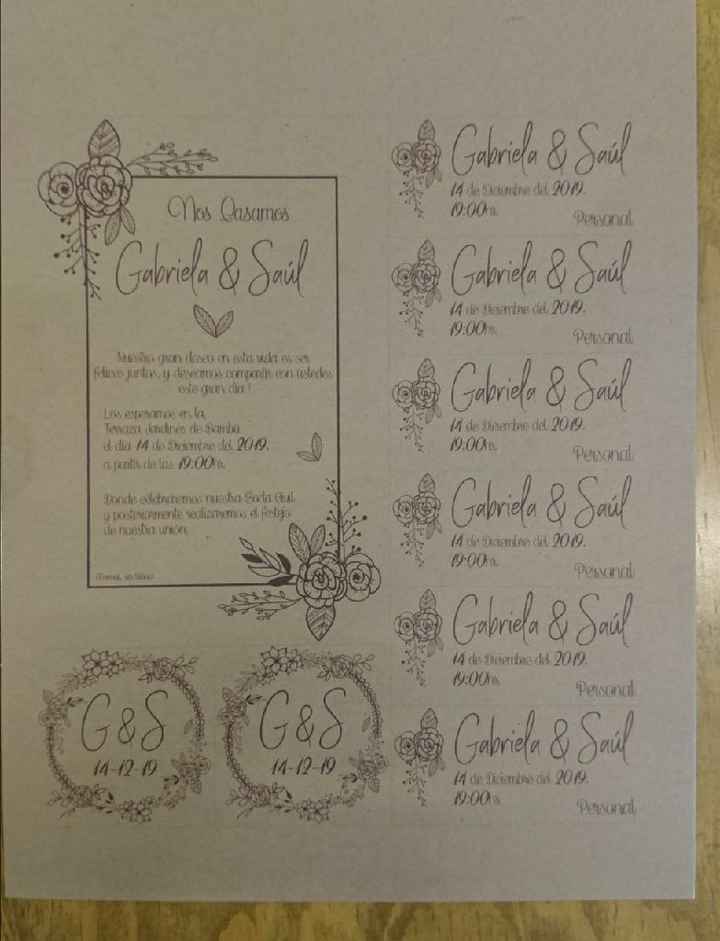 Nos Casamos
Gabriela & Saúl
Nuestro gran deseo en esta vida es ser
felices juntos, y deseamos compartir con ustedes
este gran día!
Los esperamos en la
Terraza Jardines de Bambú
el día 14 de Diciembre del 2019.
a partir de las 19:00hrs.
Donde celebraremos nuestra Boda Civil
y posteriormente realizaremos el festejo
de nuestra unión.
G&S
14-12-19
G&S
14-12-19
Gabriela & Saúl
14 de Diciembre del 2019.
19:00hrs.
Personal
Gabriela & Saúl
14 de Diciembre del 2019.
19:00hrs.
Personal
Gabriela & Saúl
14 de Diciembre del 2019.
19:00hrs.
Personal
Gabriela & Saúl
14 de Diciembre del 2019.
19:00hrs.
Personal
Gabriela & Saúl
14 de Diciembre del 2019.
19:00hrs.
Personal
Gabriela & Saúl
14 de Diciembre del 2019.
19:00hrs.
Personal